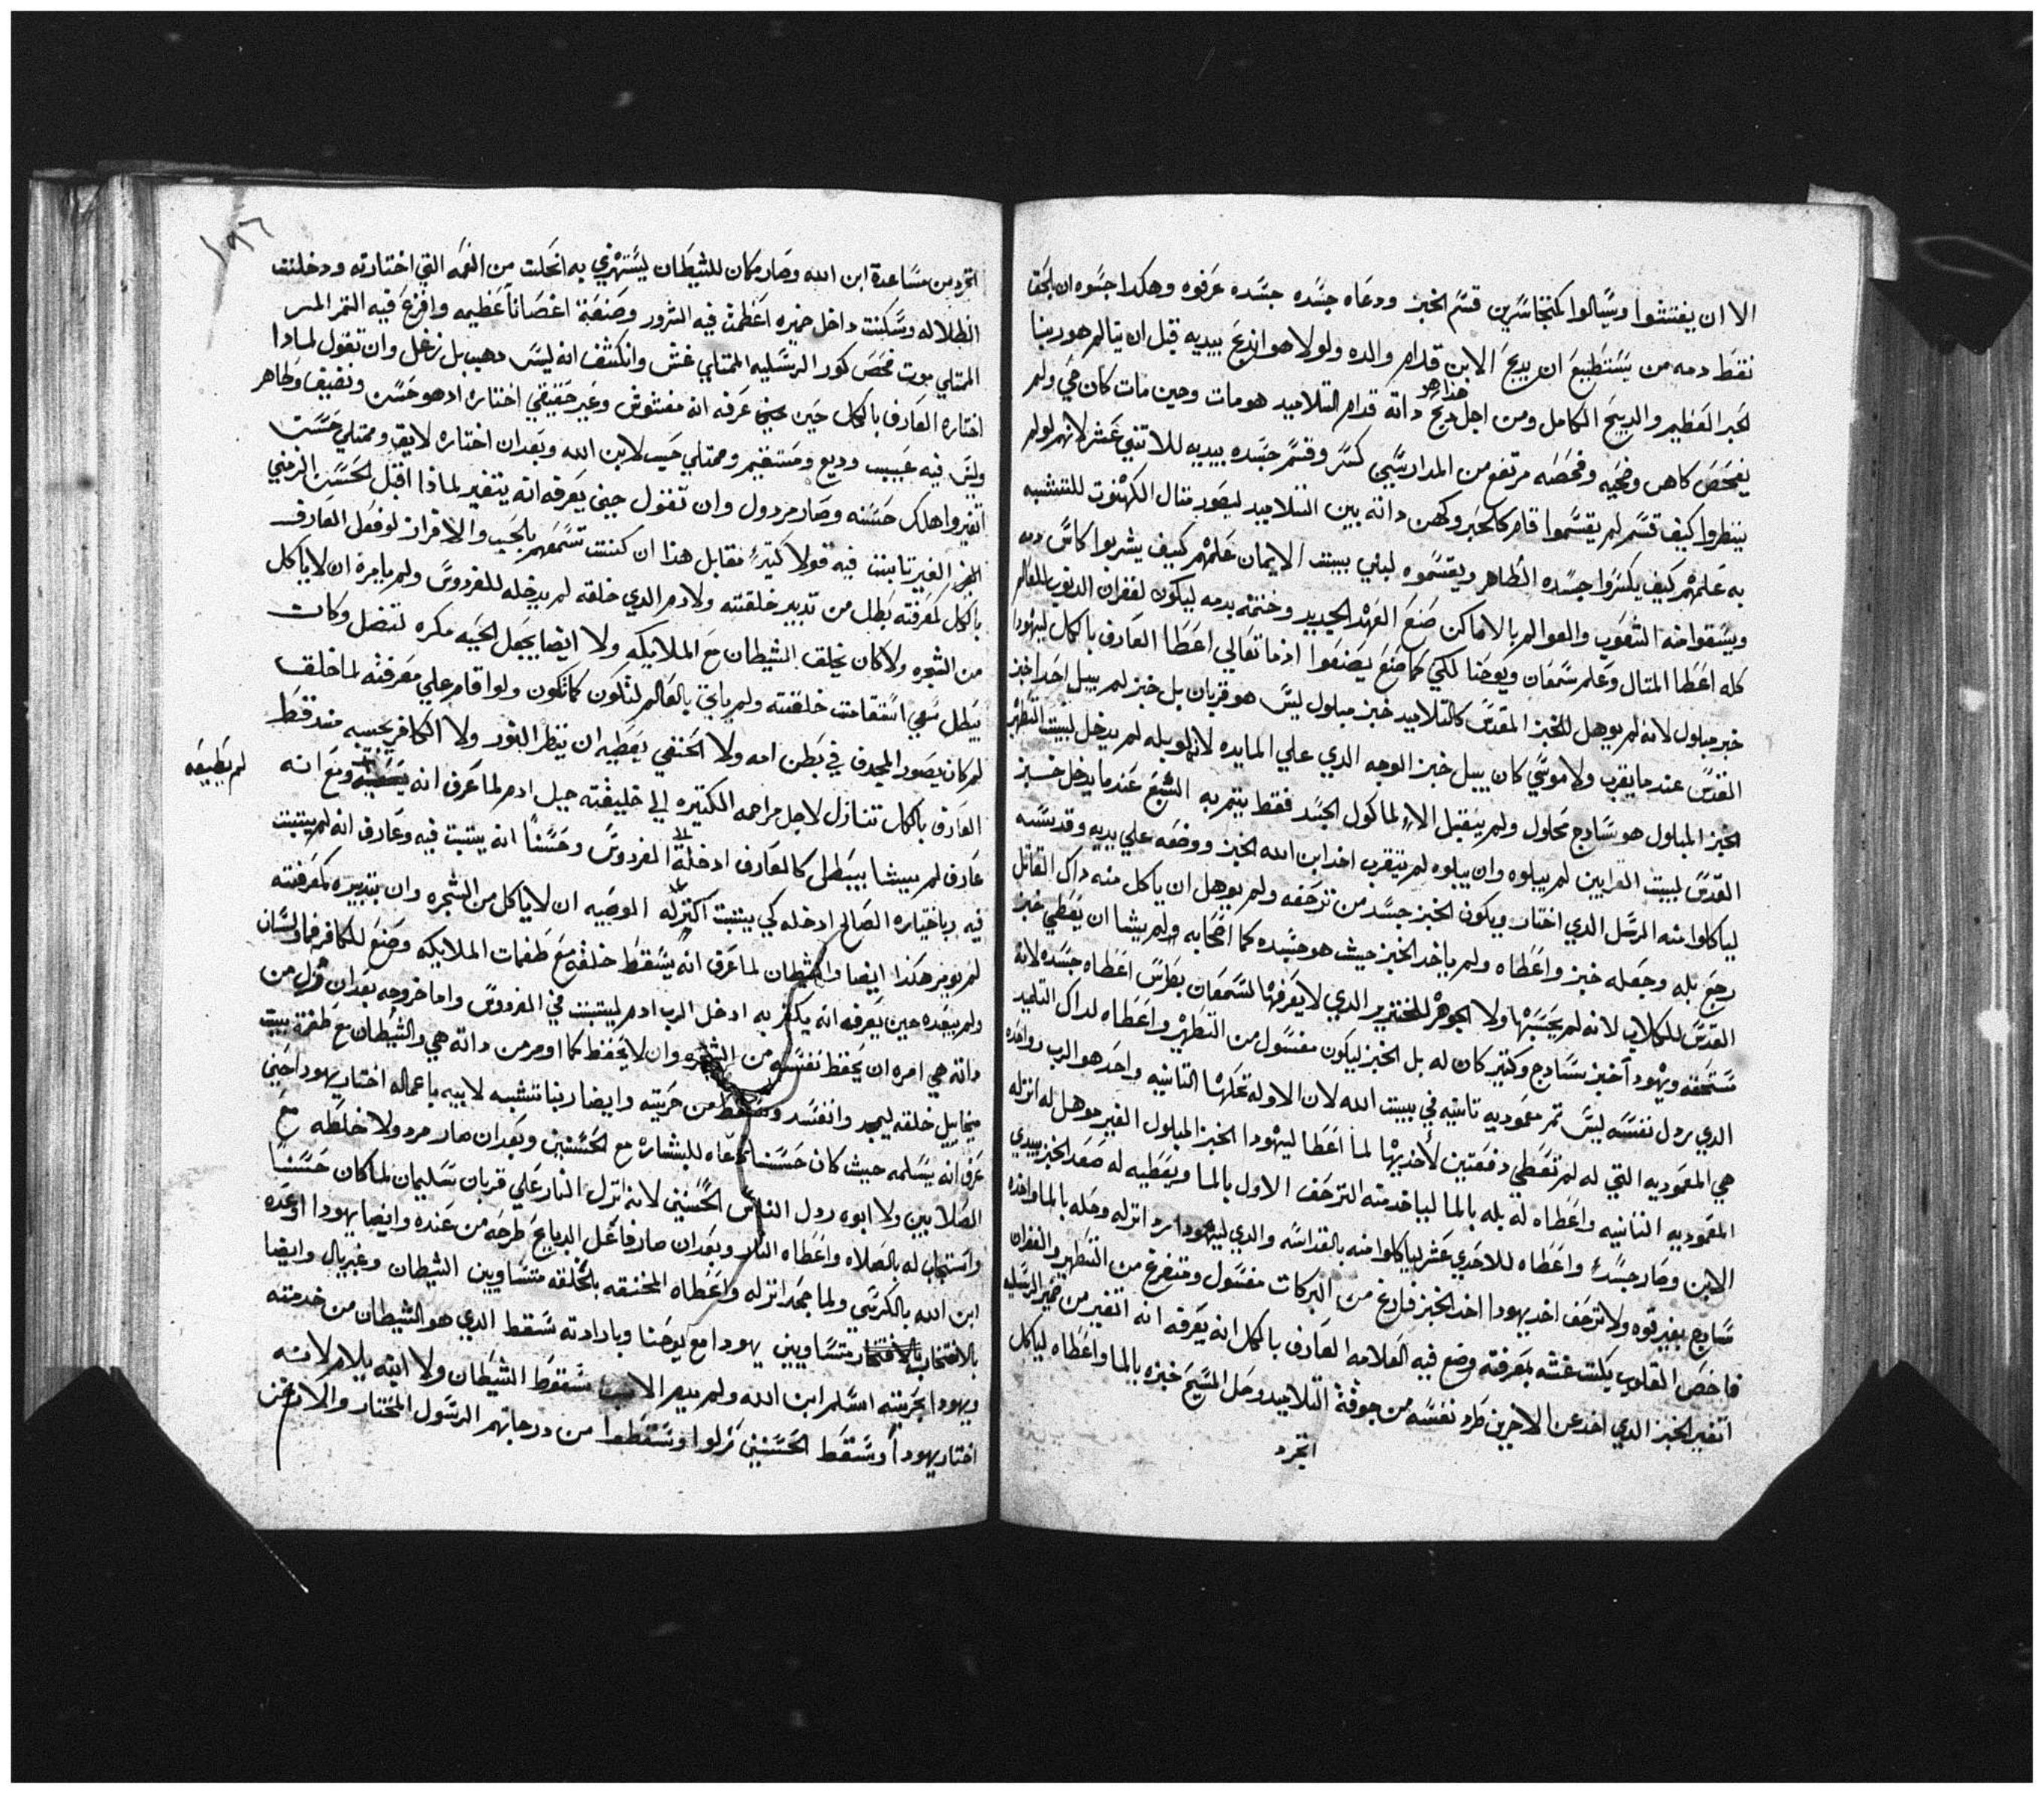 الا ان يفتشوا ويسالوا كمتجاسرين قسم الخبز ودعاه جسده جسده عرفوه وهكدا جسوه ان بالحق
نقط دمه من يستطيع ان يدبح الابن قدام والده ولولا هو اندبح بيديه قبل ان يتالم هو ربنا
الحبر العظيم والدبيح الكامل ومن اجل هذا هو دبح داته قدام التلاميد هو مات وحين مات كان حي ولم
يفحص كاهن وفحصه مرتفع من المدارسي كسر وقسم جسده بيديه للاتني عشر لانهم لو لم
ينظروا كيف قسم لم يقسموا قام كالحبر وكهن داته بين التلاميد ليصور متال الكهنوت للتشبيه
به علمهم كيف يكسروا جسده الطاهر ويقسموه لبني بيت الايمان علمهم كيف يشربوا كاس دمه
ويسقوا منه الشعوب والعوالم بالاماكن صنع العهد الجديد وختمه بدمه ليكون لغفران الدنوب للعالم
كله اعطا المتال وعلم سمعان ويوحنا لكي كما صنع يصنعوا ادما تعالي اعطا العارف بالكل ليهودا
خبز مبلول لانه لم يوهل للخبز المقدس كالتلاميد خبز مبلول ليس هو قربان بل خبز لم يبل احد اخبز
القدس عند ما يقرب ولا موسي كان يبل خبز الوجه الدي علي المايده لانه لو بله لم يدخل لبيت التطهر
الخبز المبلول هو سادج محلول ولم يتقبل الا لماكول الجسد فقط يتمر به الشبع عند ما يدخل خبز
القدس لبيت القرابين لم يبلوه وان يبلوه لم يتقرب اخد ابن الله الخبز ووضعه علي يديه وقدسه
لياكلوا منه الرسل الدي اختار ويكون الخبز جسد من ترحفه ولم يوهل ان ياكل منه داك القاتل
رجع بله وجعله خبز واعطاه ولم ياخد الخبز حيث هو جسده كما اصحابه ولم يشا ان يعطي خبز
القدس للكلاب لانه لم يحبسها ولا الجوهر للخنزير الدي لا يعرفها لسمعان بطرس اعطاه جسده لانه
مستحقه ويهودا خبز سادج وكتير كان له بل الخبز ليكون مغسول من التطهر واعطاه لداك التلميد
الدي ردل نفسه ليس تم معموديه تانيه في بيت الله لان الاوله تحلها التانيه واحد هو الرب وواحده
هي المعموديه التي له لم تعطي دفعتين لاخديها لما اعطا ليهودا الخبز المبلول الغير موهل له انزله
المعموديه التانيه واعطاه له بله بالما لياخد منه الترحف الاول بالما ويعطيه له صعد الخبز بيدي
الابن وصار جسد واعطاه للاحدي عشر لياكلوا منه بالقداسه والدي ليهودا رد انزله وحله بالما واخده
سادج بغير قوه ولا ترحف اخد يهودا اخد الخبز فارغ من البركات مغسول ومتفرغ من التطهر والغفران
فاحص القلوب يكتت غشه بمعرفته وضع فيه العلامه العارف بالكل انه يعرفه انه اتغير من خمير الرساله
اتغير الخبز الدي اخد عن الاخرين طرد نفسه من جوقة التلاميد وحل المسيح خبزه بالما واعطاه لياكل
اتجرد
١٨٦
اتجرد من مساعدة ابن الله وصار مكان للشيطان ليستهزي به انحلت من النعمه التي اختارته ودخلت
الظلاله وسكنت داخل خميره اعظمت فيه الشرور وصنعة اغصاناً عظيمه وافرع فيه التمر المر
الممتلي موت فحص كور الرسليه الممتلي غش وانكشف انه ليس دهب بل زغل وان تقول لمادا
اختاره العارف بالكل حين عرفه انه مغشوش وغير حقيقي اختاره ادهو حسن ونضيف وطاهر
وليس فيه عيب وديع ومستقيم وممتلي حب لابن الله وبعد ان اختاره لايق وممتلي حسنات
اتغير واهلك حسنه وصار مردول وان تقول حيني يعرفه انه يتغير لماذا اقبل الحسن الزمني
الغير تابت فيه قولاً كتير مقابل هذا ان كنت تسمعهم بالحب والافراز لو فعل العارف
بالكل كمعرفته بطل من تدبير خلقته ولادم الدي خلقه لم يدخله للفردوس ولم يامره ان لا ياكل
من الشجره ولا كان يخلق الشيطان مع الملايكه ولا ايضا يجعل الحيه مكره لتضل وكات
يبطل سعي استقامت خلقته ولم ياتي بالعالم لتكون كما تكون ولو اقام علي معرفته لما خلق
لم كان يصور المجدف في بطن امه ولا الحنفي يعطيه ان ينظر النور ولا الكافر يحسبه عنده قط
العارف بالكل تنازل لاجل مراحمه الكتيره الي خليقته جبل ادم لما عرف انه ومع انه
لم يطيعه
عارف لم يشا يبطل كالعارف ادخله الفردوس وحسناً انه يتبت فيه وعارف انه لم يتبت
فيه وباختياره الصالح ادخله كي يتبت اكترله الوصيه ان لا ياكل من الشجره وان بتدبيره كمعرفته
لم يومر هكذا ايضا والشيطان لما عرف انه يسقط خلقه مع طغمات الملايكه وصنع للكافر فما ولسان
ولم يبعده حين يعرفه انه يكفر به ادخل الرب ادم ليتبت في الفردوس واما خروجه بعد ان من
داته هي امره ان يحفظ نفسه من الشجره وان لا يحفظ كما اومر من داته هي والشيطان مع طغمة بيت
ميخاييل خلقه ليمجد وانفسد وسقط من حريته وايضا ربنا تشبه لابيه باعماله اختار يهودا حين
عرف انه يسلمه حيث كان حسناً دعاه للبشاره مع الحسنين وبعد ان صار مردولا خلطه مع
الصلابين ولا ابوه ردل الناس الحسنين لانه انزل النار علي قربان سليمان لما كان حسناً
واستجاب له بالصلاه واعطاه النار وبعد ان صار فاعل الدبايح طرحه من عنده وايضا يهودا اوعده
ابن الله بالكرسي ولما جحد انزله واعطاه المخنقه بالخلقه متساويين الشيطان وغبريال وايضا
بالانتخاب متساويين يهودا مع يوحنا وبارادته سقط الدي هو الشيطان من خدمته
ويهودا بحريته اسلم ابن الله ولم يدم الاب سقوط الشيطان ولا ابنه يلام لانه
اختار يهودا وسقط الحسنين نزلوا وسقطوا من درجاتهم الرسول المختار والاركن